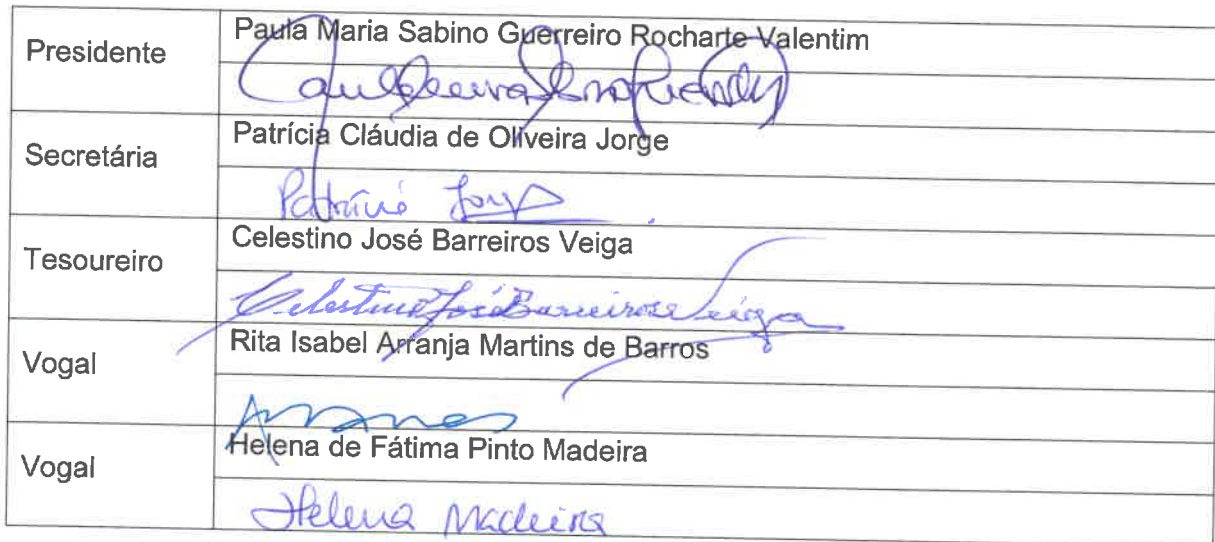 Presidente
Paula Maria Sabino Guerreiro Rocharte Valentim
Secretária
Patrícia Cláudia de Oliveira Jorge
Patrícia Jorge
Tesoureiro
Celestino José Barreiros Veiga
Celestino José Barreiros Veiga
Vogal
Rita Isabel Arranja Martins de Barros
Vogal
Helena de Fátima Pinto Madeira
Helena Madeira